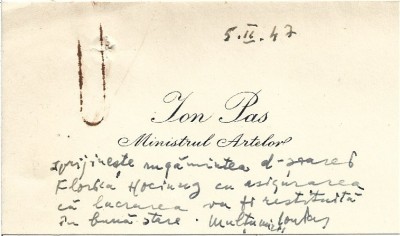 5.II.47
Ion Pas
Ministrul Artelor
sprijinește rugămintea d-soarei
Florica
cu asigurarea
că lucrarea va fi restituită
în bună stare. Mulțumiri